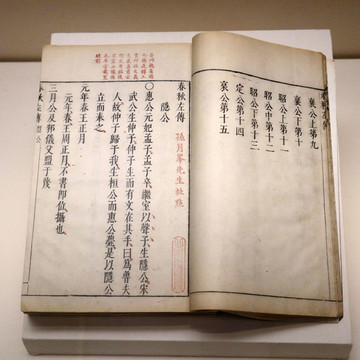 襄公上第九
襄公下第十
昭公上第十一
昭公中第十二
昭公下第十三
定公第十四
哀公第十五
春秋左傳
孫月峯先生批點
隱公
○惠公元妃孟子孟子卒繼室以聲子生隱公宋
武公生仲子仲子生而有文在其手曰爲魯夫
人故仲子歸于我生桓公而惠公薨是以隱公
立而奉之
元年春王正月
元年春王周正月不書卽位攝也
三月公及邾儀父盟于蔑